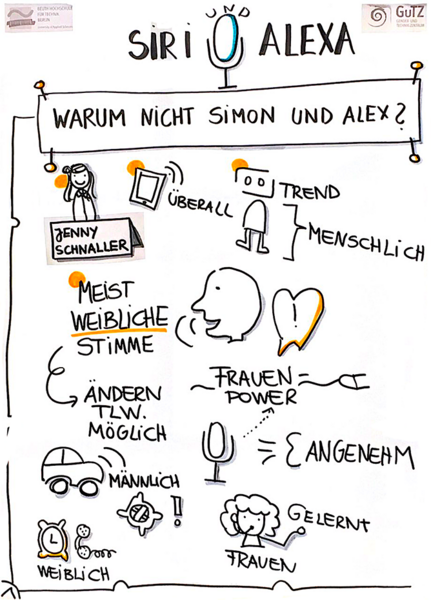 SIRI UND ALEXA
GUTZ
WARUM NICHT SIMON UND ALEX?
JENNY
SCHNALLER
ÜBERALL
TREND
MENSCHLICH
MEIST
WEIBLICHE
STIMME
!
ÄNDERN
TLW.
MÖGLICH
FRAUEN
POWER
ANGENEHM
MÄNNLICH
!
WEIBLICH
GELERNT
FRAUEN